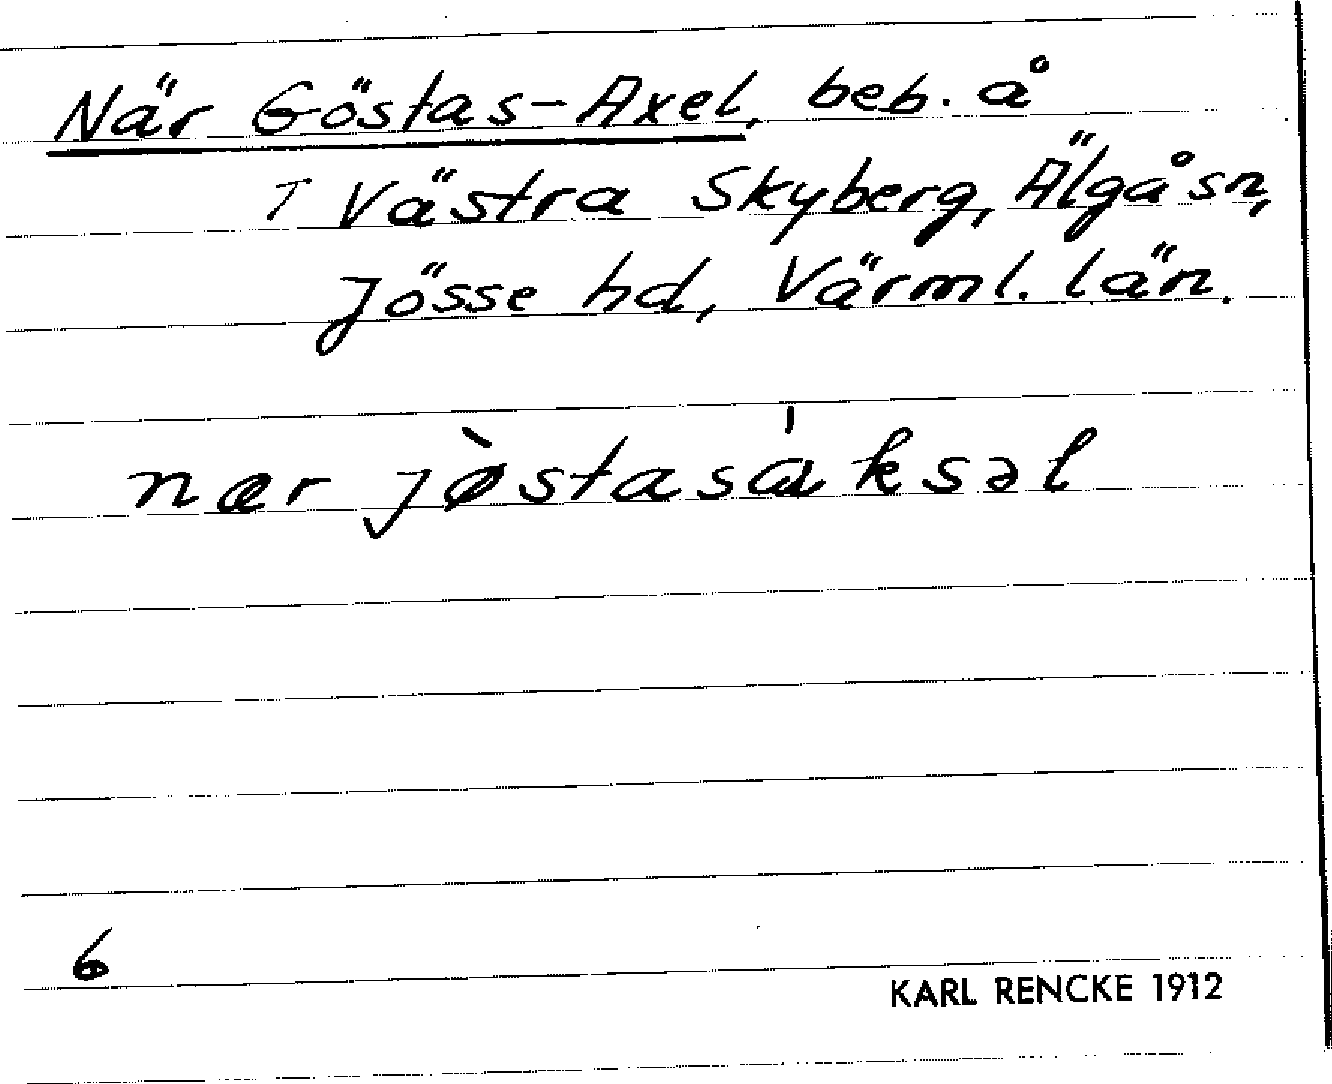 När Göstas-Axel, beb. å
T Västra Skyberg, Älgåsn,
Jösse hd, Värml. län.
nær jøstasáksəl
6
KARL RENCKE 1912